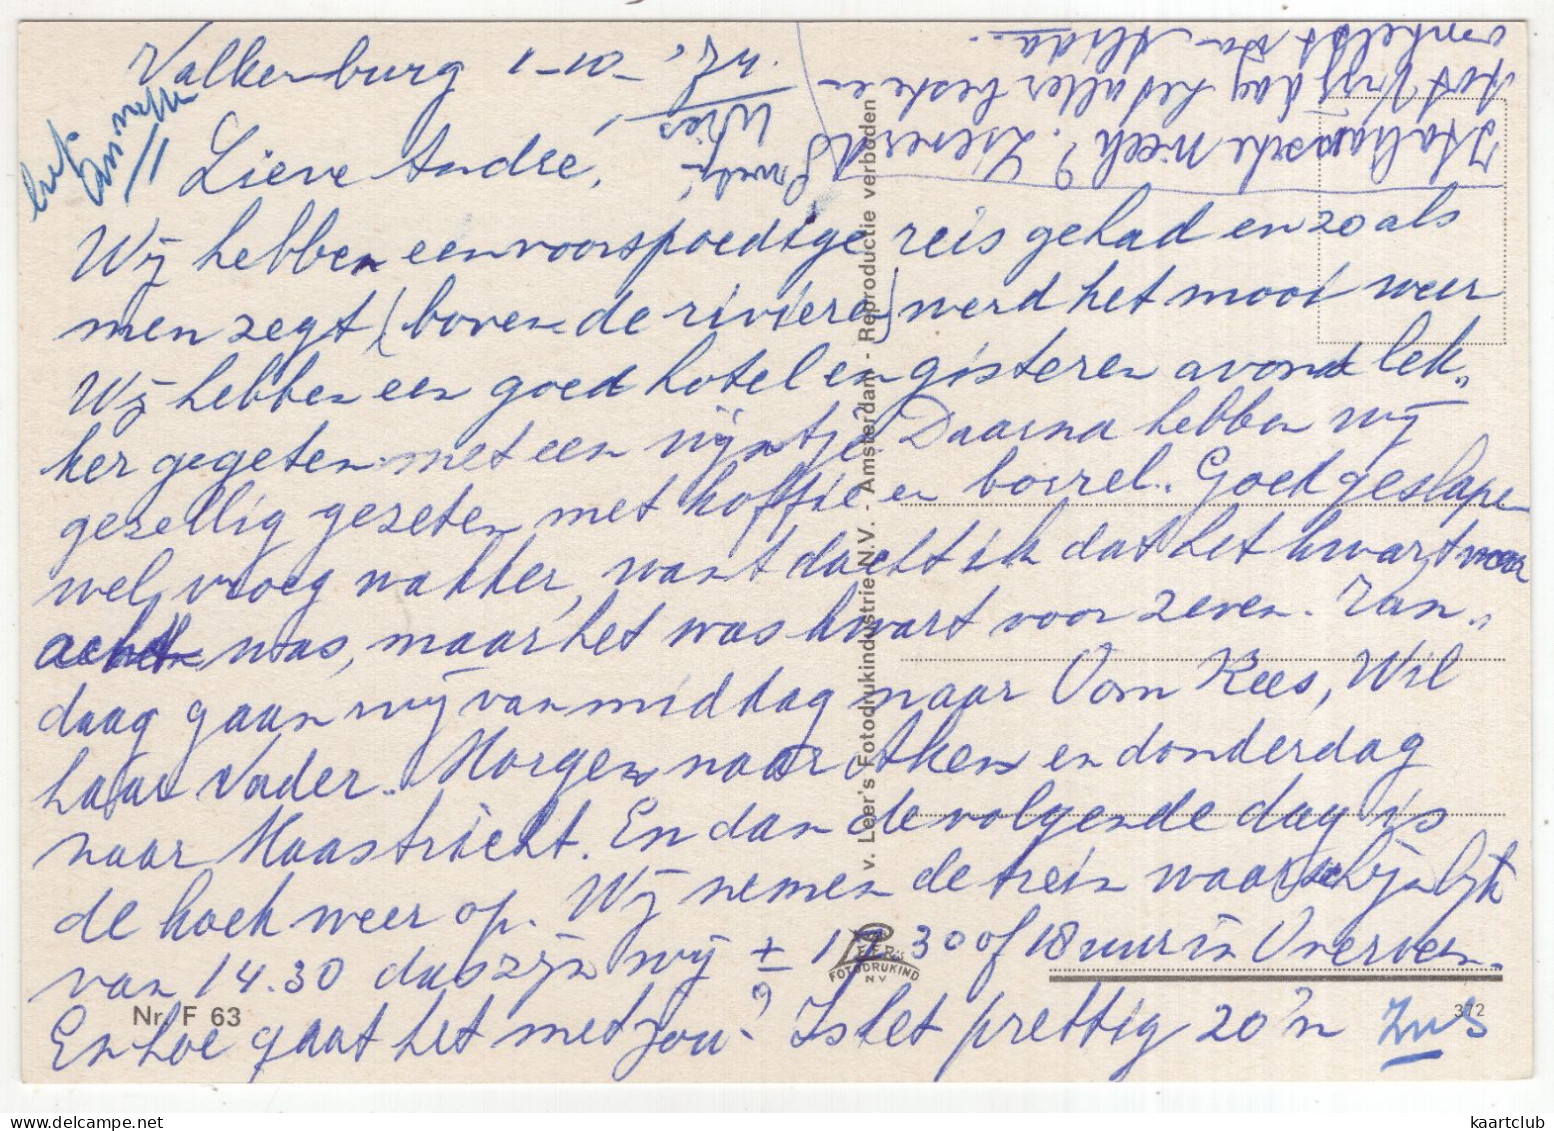 Valkenburg 1-10-'74.
Lieve André,
Wij hebben een voorspoedige reis gehad en zoals
men zegt (boven de rivieren) werd het mooi weer
Wij hebben een goed hotel en gisteren avond lek„
ker gegeten met een wijntje. Daarna hebben wij
gezellig gezeten met koffie en borrel. Goed geslapen
wel vroeg wakker, want dacht ik dat het kwart voor
acht was, maar het was kwart voor zeven. Van„
daag gaan wij van middag naar Oom Kees, Wil
haar Vader. Morgen naar Aken en donderdag
naar Maastricht. En dan de volgende dag is
de koek weer op. Wij nemen de trein waarschijnlijk
van 14.30 dus zijn wij ± 17.30 of 18 uur in Overveen.
En hoe gaat het met jou? Is het prettig zo'n
Italiaansche week? Lieverd
tot Vrijdag het allerbeste en
omhelst van Alida.
Zus
v. Leer's Fotodrukindustrie N.V. - Amsterdam - Reproductie verboden
LEER's
FOTODRUKIND
N V
Nr. F 63
372
kaartclub